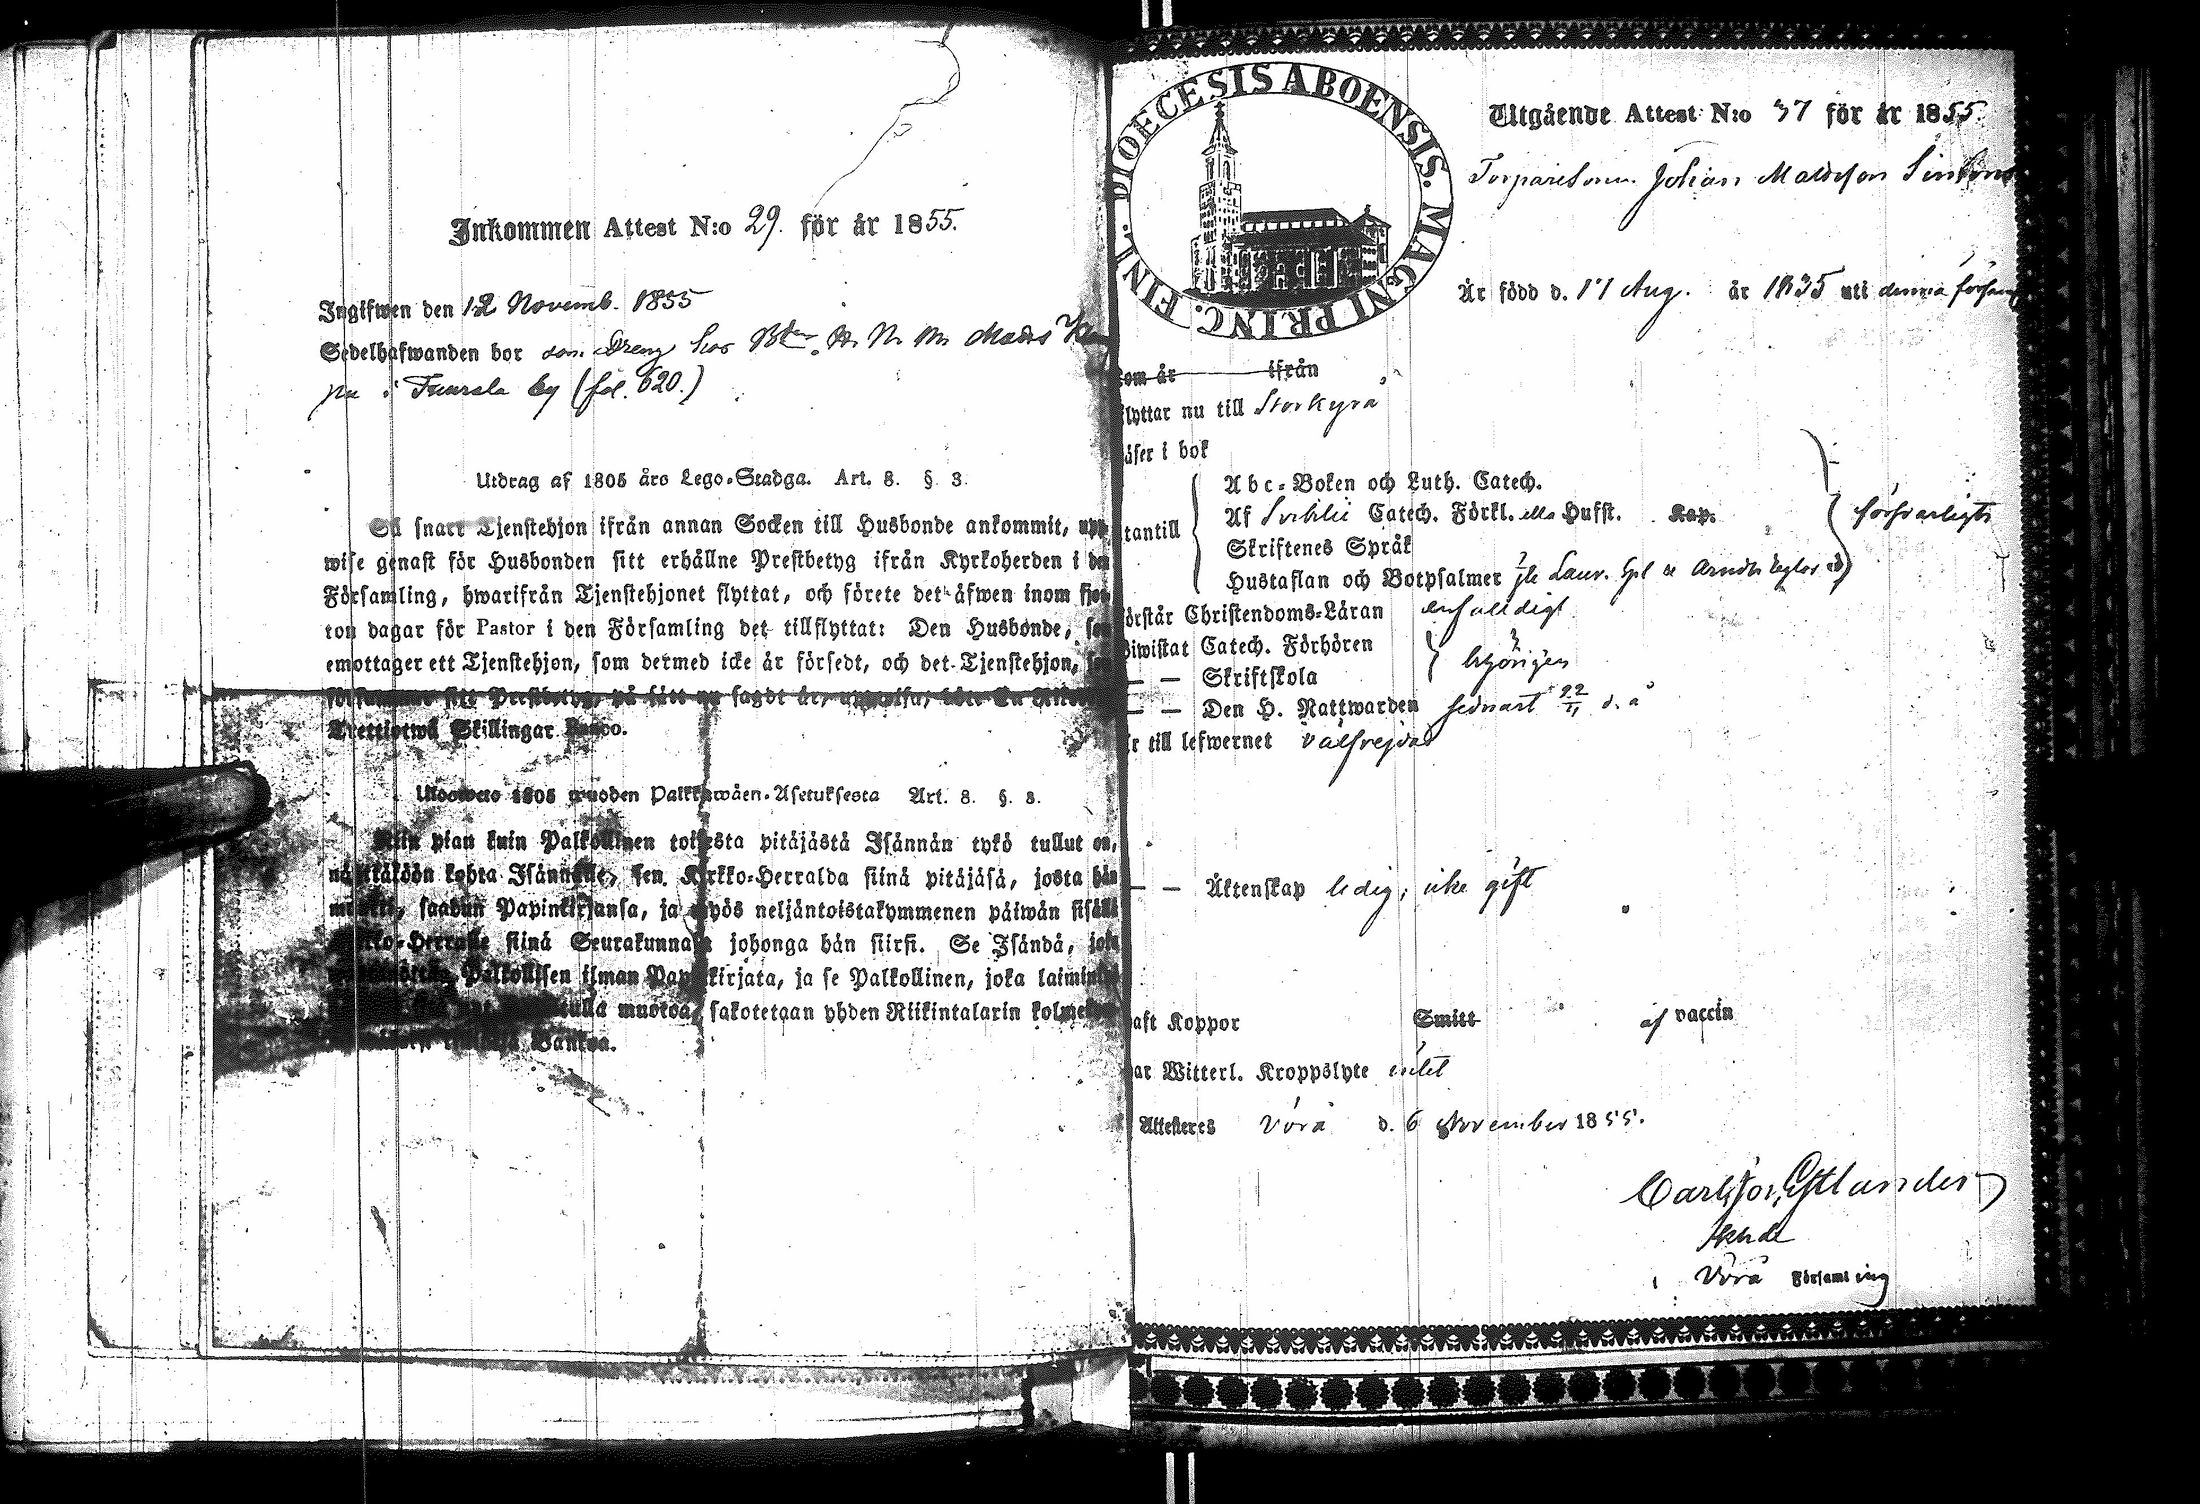 Inkommen Attest N:o 29. för år 1855.
Ingifwen den 12 Novemb. 1855
Sedelhafwanden bor som Dreng hos Mats
i Tuurala by (fol. 620.)
Utdrag af 1805 års Lego-Stadga. Art. 8. § 3.
Så snart Tjenstehjon ifrån annan Socken till Husbonde ankommit, upp-
wise genast för Husbonden sitt erhållne Prestbetyg ifrån Kyrkoherden i den
Församling, hwarifrån Tjenstehjonet flyttat, och förete det äfwen inom fjor-
ton dagar för Pastor i den Församling det tillflyttat: Den Husbonde, som
emottager ett Tjenstehjon, som dermed icke är försedt, och det Tjenstehjon, som
sitt Prestbetyg, på sätt nu sagdt är, uppwisa, böte En Riksd.
Trettiotwå Skillingar Banco.
Ulosweto 1805 wuoden Palkkawäen-Asetuksesta Art. 8. §. 3.
Niin pian kuin Palkollinen toisesta pitäjästä Isännän tykö tullut on,
näyttäköön kohta Isännälle, sen Kirkko-Herralda siinä pitäjäsä, josta hän
muutti, saadun Papinkirjansa, ja myös neljäntoistakymmenen päiwän sisällä
Kirkko-Herralle siinä Seurakunnasa johonga hän siirsi. Se Isändä, joka
Palkollisen ilman Papinkirjata, ja se Palkollinen, joka laimin
tulla muotoa, sakotetaan yhden Riikintalarin kolme
Bankoa.
DIOECESIS ABOENSIS. MAGNI PRINC. FINL.
Utgående Attest N:o 37 för år 1855.
Torparesonen Johan Mattsson
Är född d. 17 Aug. år 1835 uti denna förs
som år ifrån
flyttar nu till Storkyro
läser i bok
Abc-Boken och Luth. Catech.
Af Svebilii Catech. Förkl. Hufst. Kap.
utantill
försvarligt
Skriftenes Språk
Hustaflan och Botpsalmer Laur. Spl
förstår Christendoms-Läran enfaldigt
Biwistat Catech. Förhören
— — Skriftskola
behörigen
— — Den H. Nattwarden sednast 22/11 d. å
är till lefwernet välfrejdad
— — Äktenskap ledig, icke gift
haft Koppor Smitt af vaccin
har Witterl. Kroppslyte intet
Attesteres Vörå d. 6 November 1855.
Carl Estlander
Vörå Församling